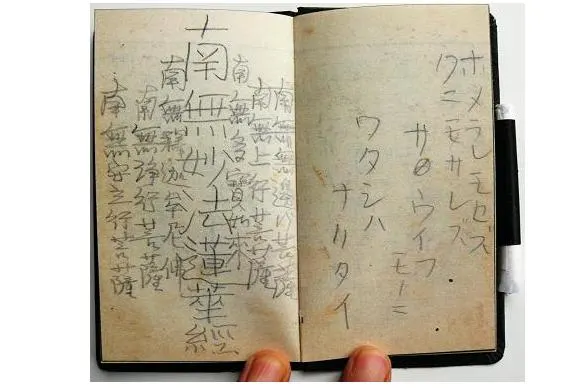 ホメラレモセズ
クニモサレズ
サウイフ
モノニ
ワタシハ
ナリタイ
南無無邊行菩薩
南無上行菩薩
南無多寶如來
南無妙法蓮華經
南無釋迦牟尼佛
南無淨行菩薩
南無安立行菩薩